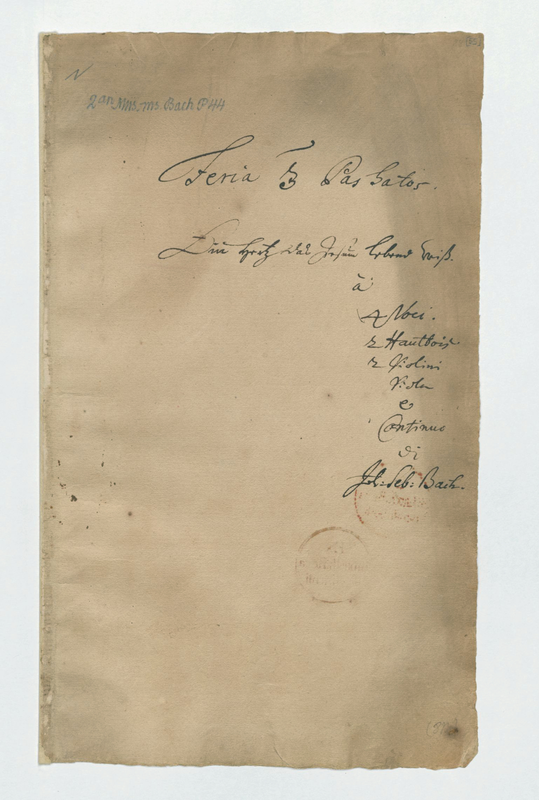 2 an Mus. ms. Bach P 44
Feria 3 Paschatos.
Ein Hertz das Jesum lebend weiß.
à
4 Voci.
2 Hautbois
2 Violini
Viola
e
Continuo
di
Joh: Seb: Bach.